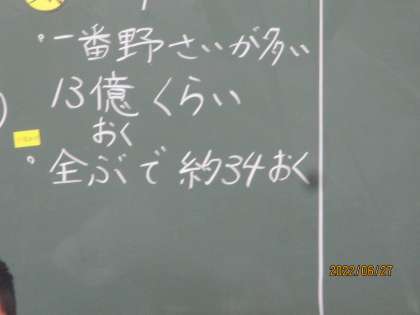 ・一番野さいが多い
13億くらい
おく
・全ぶで約34おく
2022/06/27